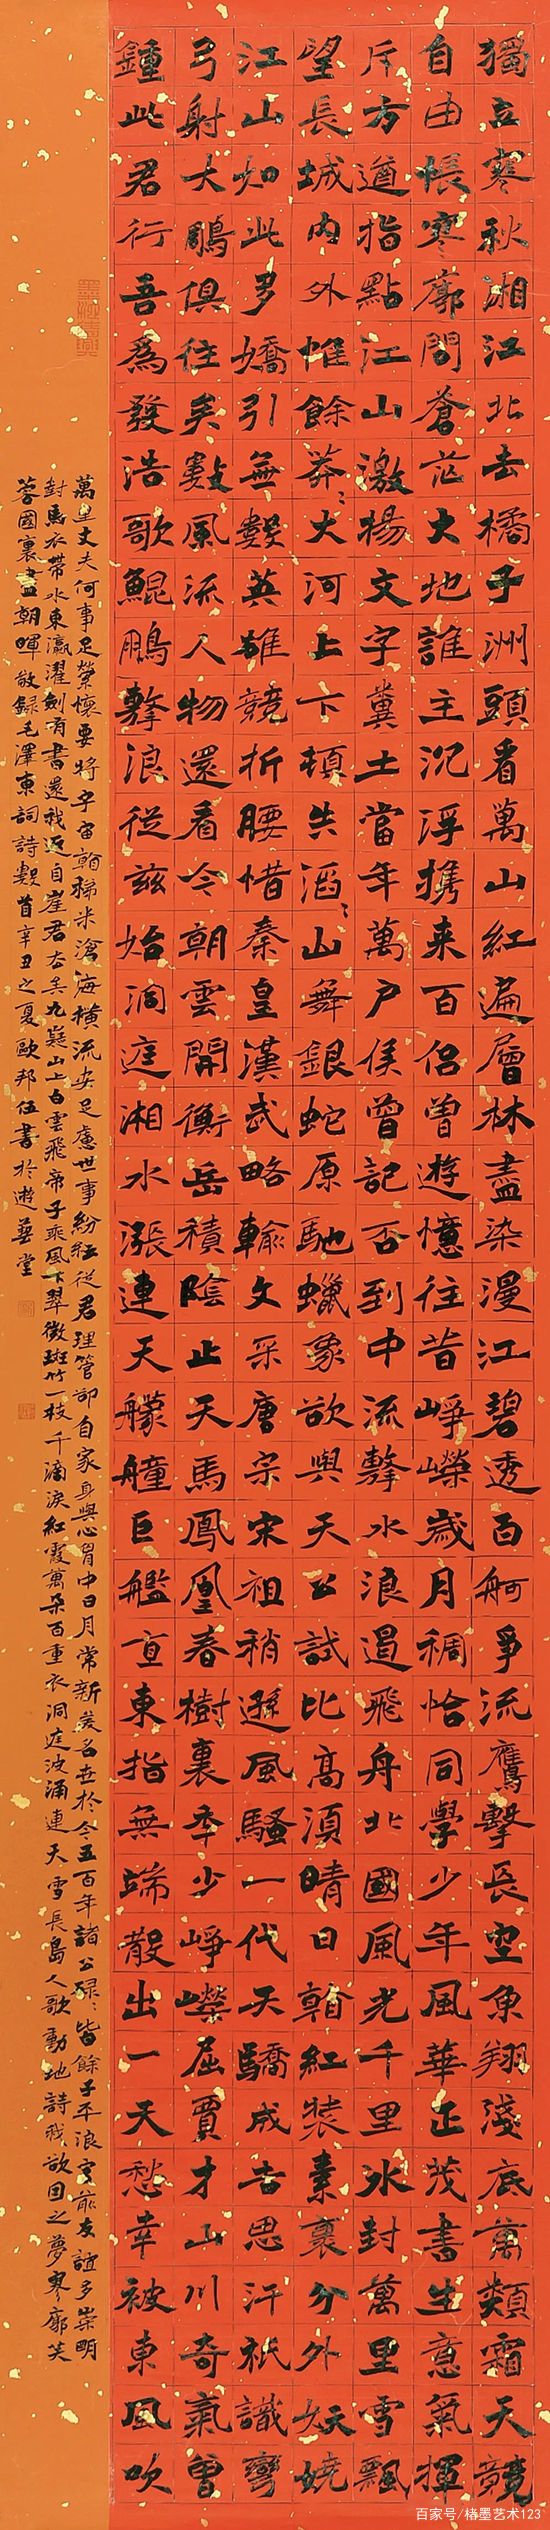 獨立寒秋湘江北去橘子洲頭看萬山紅遍層林盡染漫江碧透百舸爭流鷹擊長空魚翔淺底萬類霜天競
自由悵寥廓問蒼茫大地誰主沉浮携来百侶曾遊憶往昔崢嶸歲月稠恰同學少年風華正茂書生意氣揮
斥方遒指點江山激揚文字糞土當年萬户侯曾記否到中流擊水浪遏飛舟北國風光千里冰封萬里雪飄
望長城内外惟餘莽〻大河上下頓失滔〻山舞銀蛇原馳蠟象欲與天公試比高須晴日看紅裝素裹分外妖嬈
江山如此多嬌引無數英雄競折腰惜秦皇漢武略輸文采唐宗宋祖稍遜風騷一代天驕成吉思汗祇識彎
弓射大鵰俱往矣數風流人物還看今朝雲開衡岳積陰止天馬鳳凰春樹裏年少崢嶸屈賈才山川奇氣曾
鍾此君行吾爲發浩歌鯤鵬擊浪從兹始洞庭湘水漲連天艨艟巨艦直東指無端散出一天愁幸被東風吹
萬里丈夫何事足縈懷要將宇宙看稊米滄海橫流安足慮世事紛紜從君理管卻自家身與心胸中日月常新美名世於今五百年諸公碌〻皆餘子平浪宮前友誼多崇明
對馬衣帶水東瀛濯劍有書還我返自崖君去矣九嶷山上白雲飛帝子乘風下翠微斑竹一枝千滴淚紅霞萬朵百重衣洞庭波涌連天雪長島人歌動地詩我欲因之夢寥廓芙
蓉國裏盡朝暉敬錄毛澤東詞詩數首辛丑之夏歐邦伍書於遊藝堂
百家号/楮墨艺术123